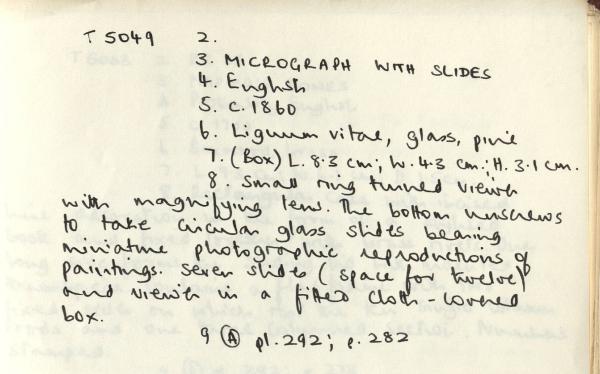 T 5049 2.
3. MICROGRAPH WITH SLIDES
4. English
5. c. 1860
6. Lignum vitae, glass, pine
7. (Box) L. 8.3 cm; W. 4.3 cm; H. 3.1 cm.
8. Small ring turned viewer
with magnifying lens. The bottom unscrews
to take circular glass slides bearing
miniature photographic reproductions of
paintings. Seven slides (space for twelve)
and viewer in a fitted cloth-covered
box.
9 (A) pl. 292; p. 282